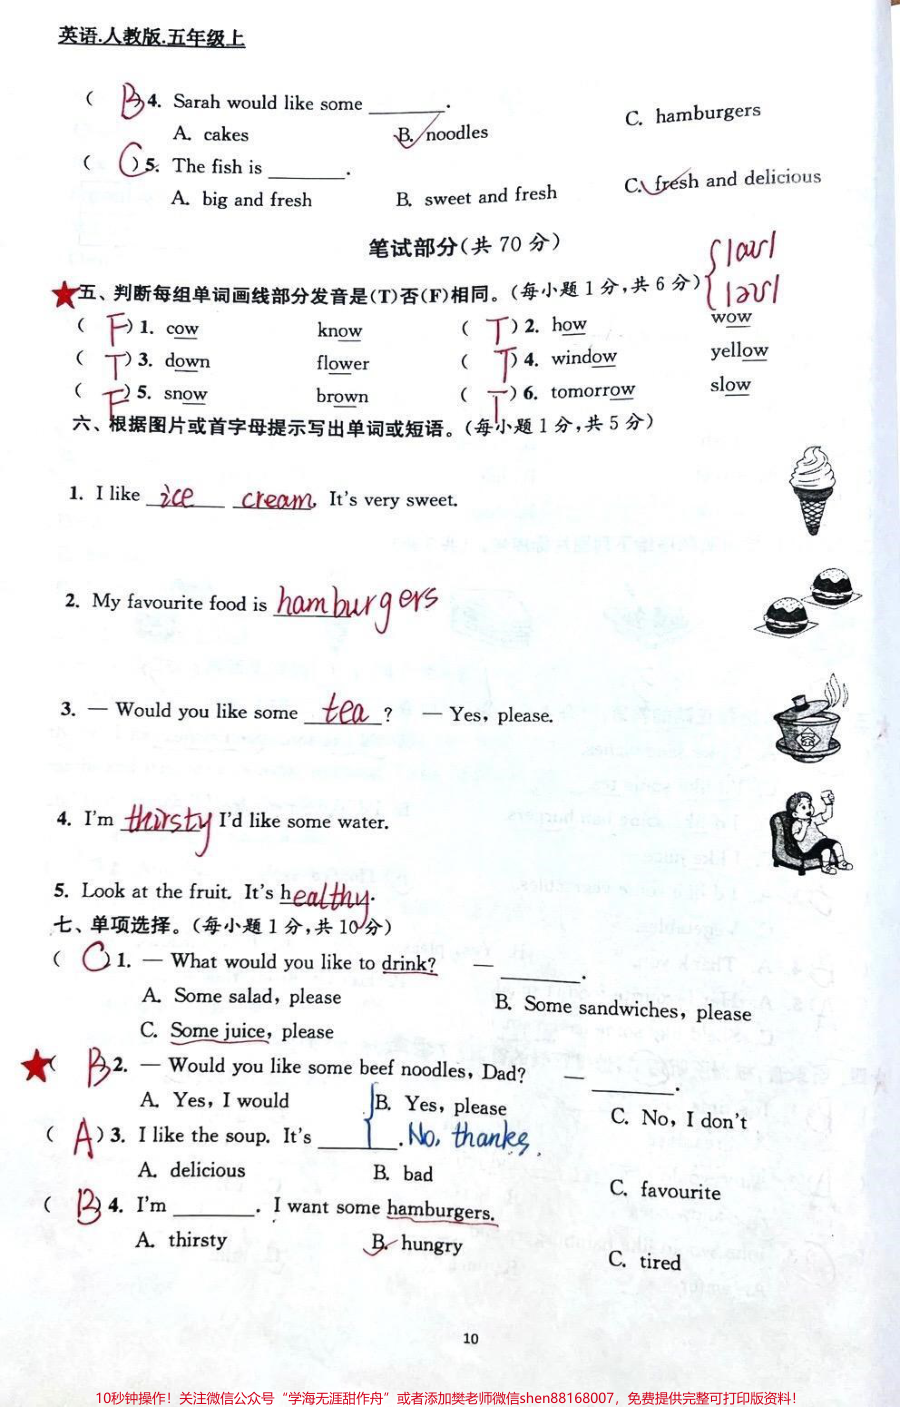 英语.人教版.五年级上
( B 4. Sarah would like some ______.
A. cakes B. noodles C. hamburgers
( C ) 5. The fish is ______.
A. big and fresh B. sweet and fresh C. fresh and delicious
笔试部分(共 70 分)
★五、判断每组单词画线部分发音是(T)否(F)相同。(每小题 1 分,共 6 分) { /aʊ/
/əʊ/
( F ) 1. cow know ( T ) 2. how wow
( T ) 3. down flower ( T ) 4. window yellow
( F ) 5. snow brown ( T ) 6. tomorrow slow
六、根据图片或首字母提示写出单词或短语。(每小题 1 分,共 5 分)
1. I like ice cream. It's very sweet.
2. My favourite food is hamburgers
3. — Would you like some tea ? — Yes, please.
4. I'm thirsty I'd like some water.
5. Look at the fruit. It's healthy.
七、单项选择。(每小题 1 分,共 10 分)
( C ) 1. — What would you like to drink? — ______.
A. Some salad, please B. Some sandwiches, please
C. Some juice, please
★( B 2. — Would you like some beef noodles, Dad? — ______.
A. Yes, I would B. Yes, please C. No, I don't
( A ) 3. I like the soup. It's ______. No, thanks.
A. delicious B. bad C. favourite
( B ) 4. I'm ______. I want some hamburgers.
A. thirsty B. hungry C. tired
10
10秒钟操作！关注微信公众号“学海无涯甜作舟”或者添加樊老师微信shen88168007，免费提供完整可打印版资料！